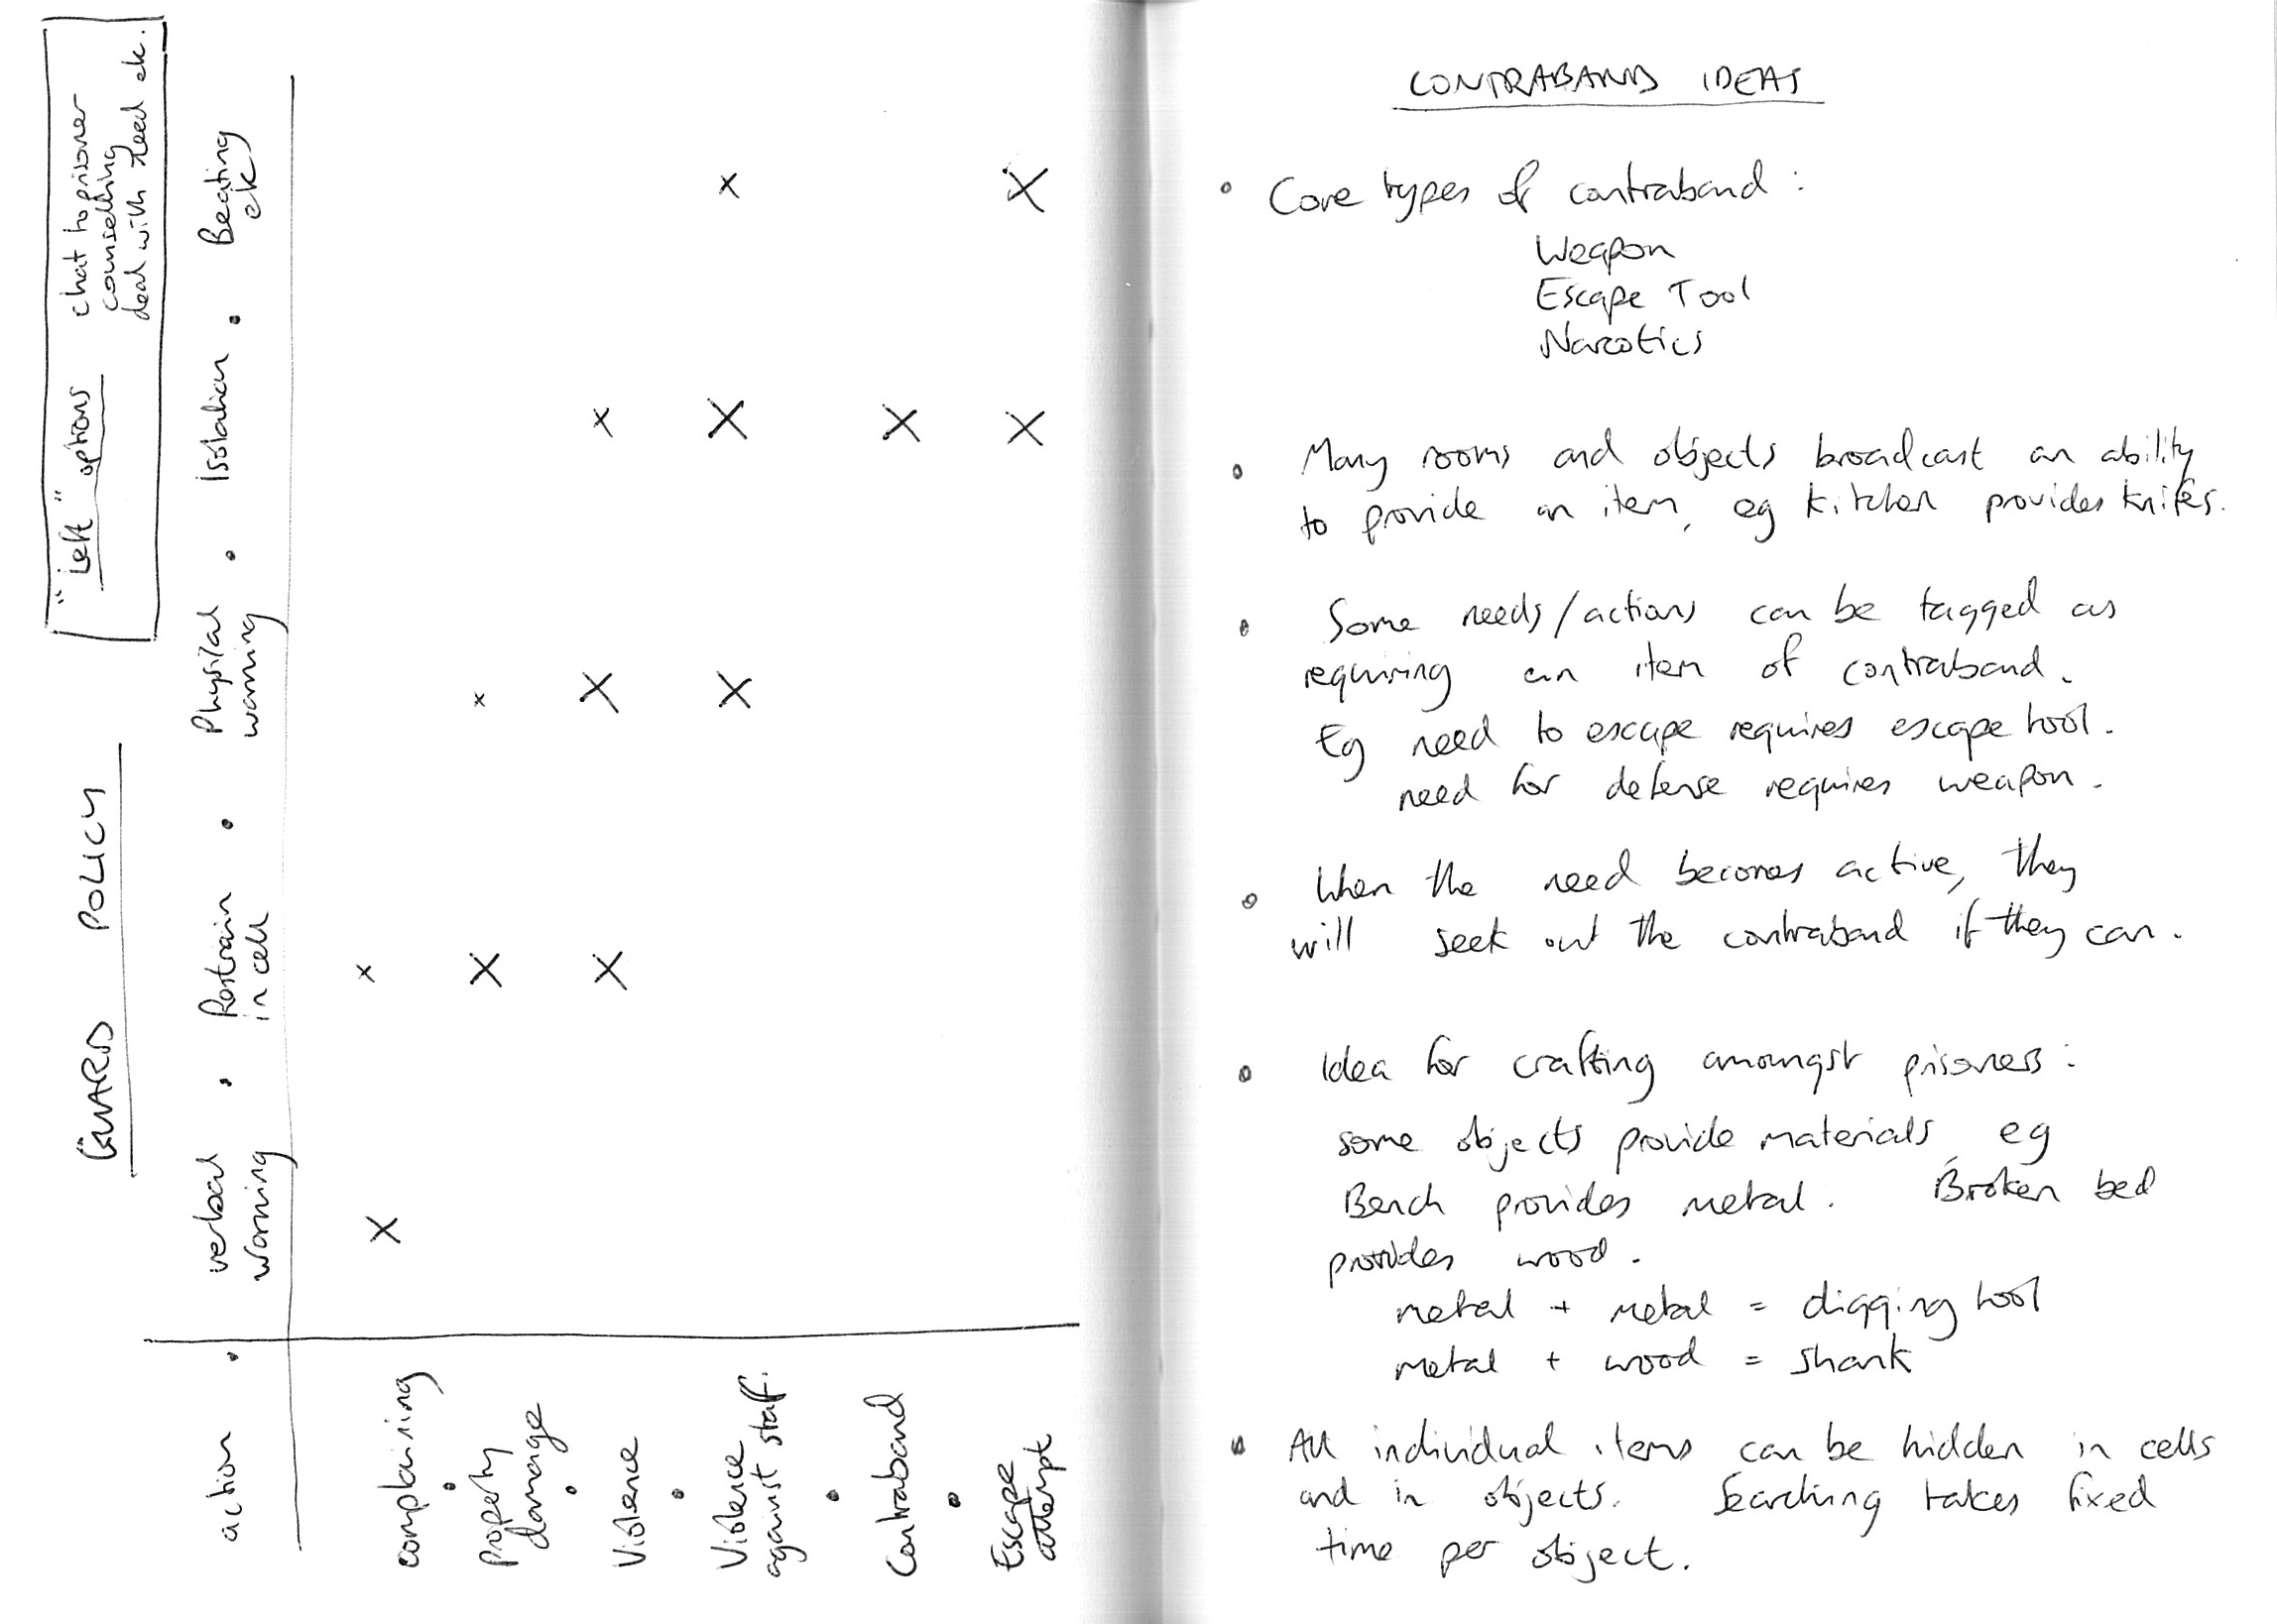 GUARD POLICY
"Left" options
chat to prisoner
counselling
deal with need etc.
action
verbal
warning
Restrain
in cell
Physical
warning
Isolation
Beating
etc
complaining
X x
property
damage
X x
Violence
X X x
Violence
against staff.
X X x
Contraband
X
Escape
attempt
X X
CONTRABAND IDEAS
• Core types of contraband :
Weapon
Escape Tool
Narcotics
• Many rooms and objects broadcast an ability
to provide an item, eg kitchen provides knifes.
• Some needs/actions can be tagged as
requiring an item of contraband.
Eg need to escape requires escape tool.
need for defense requires weapon.
• When the need becomes active, they
will seek out the contraband if they can.
• Idea for crafting amongst prisoners :
some objects provide materials, eg
Bench provides metal. Broken bed
provides wood.
metal + metal = digging tool
metal + wood = shank
• All individual items can be hidden in cells
and in objects. Searching takes fixed
time per object.